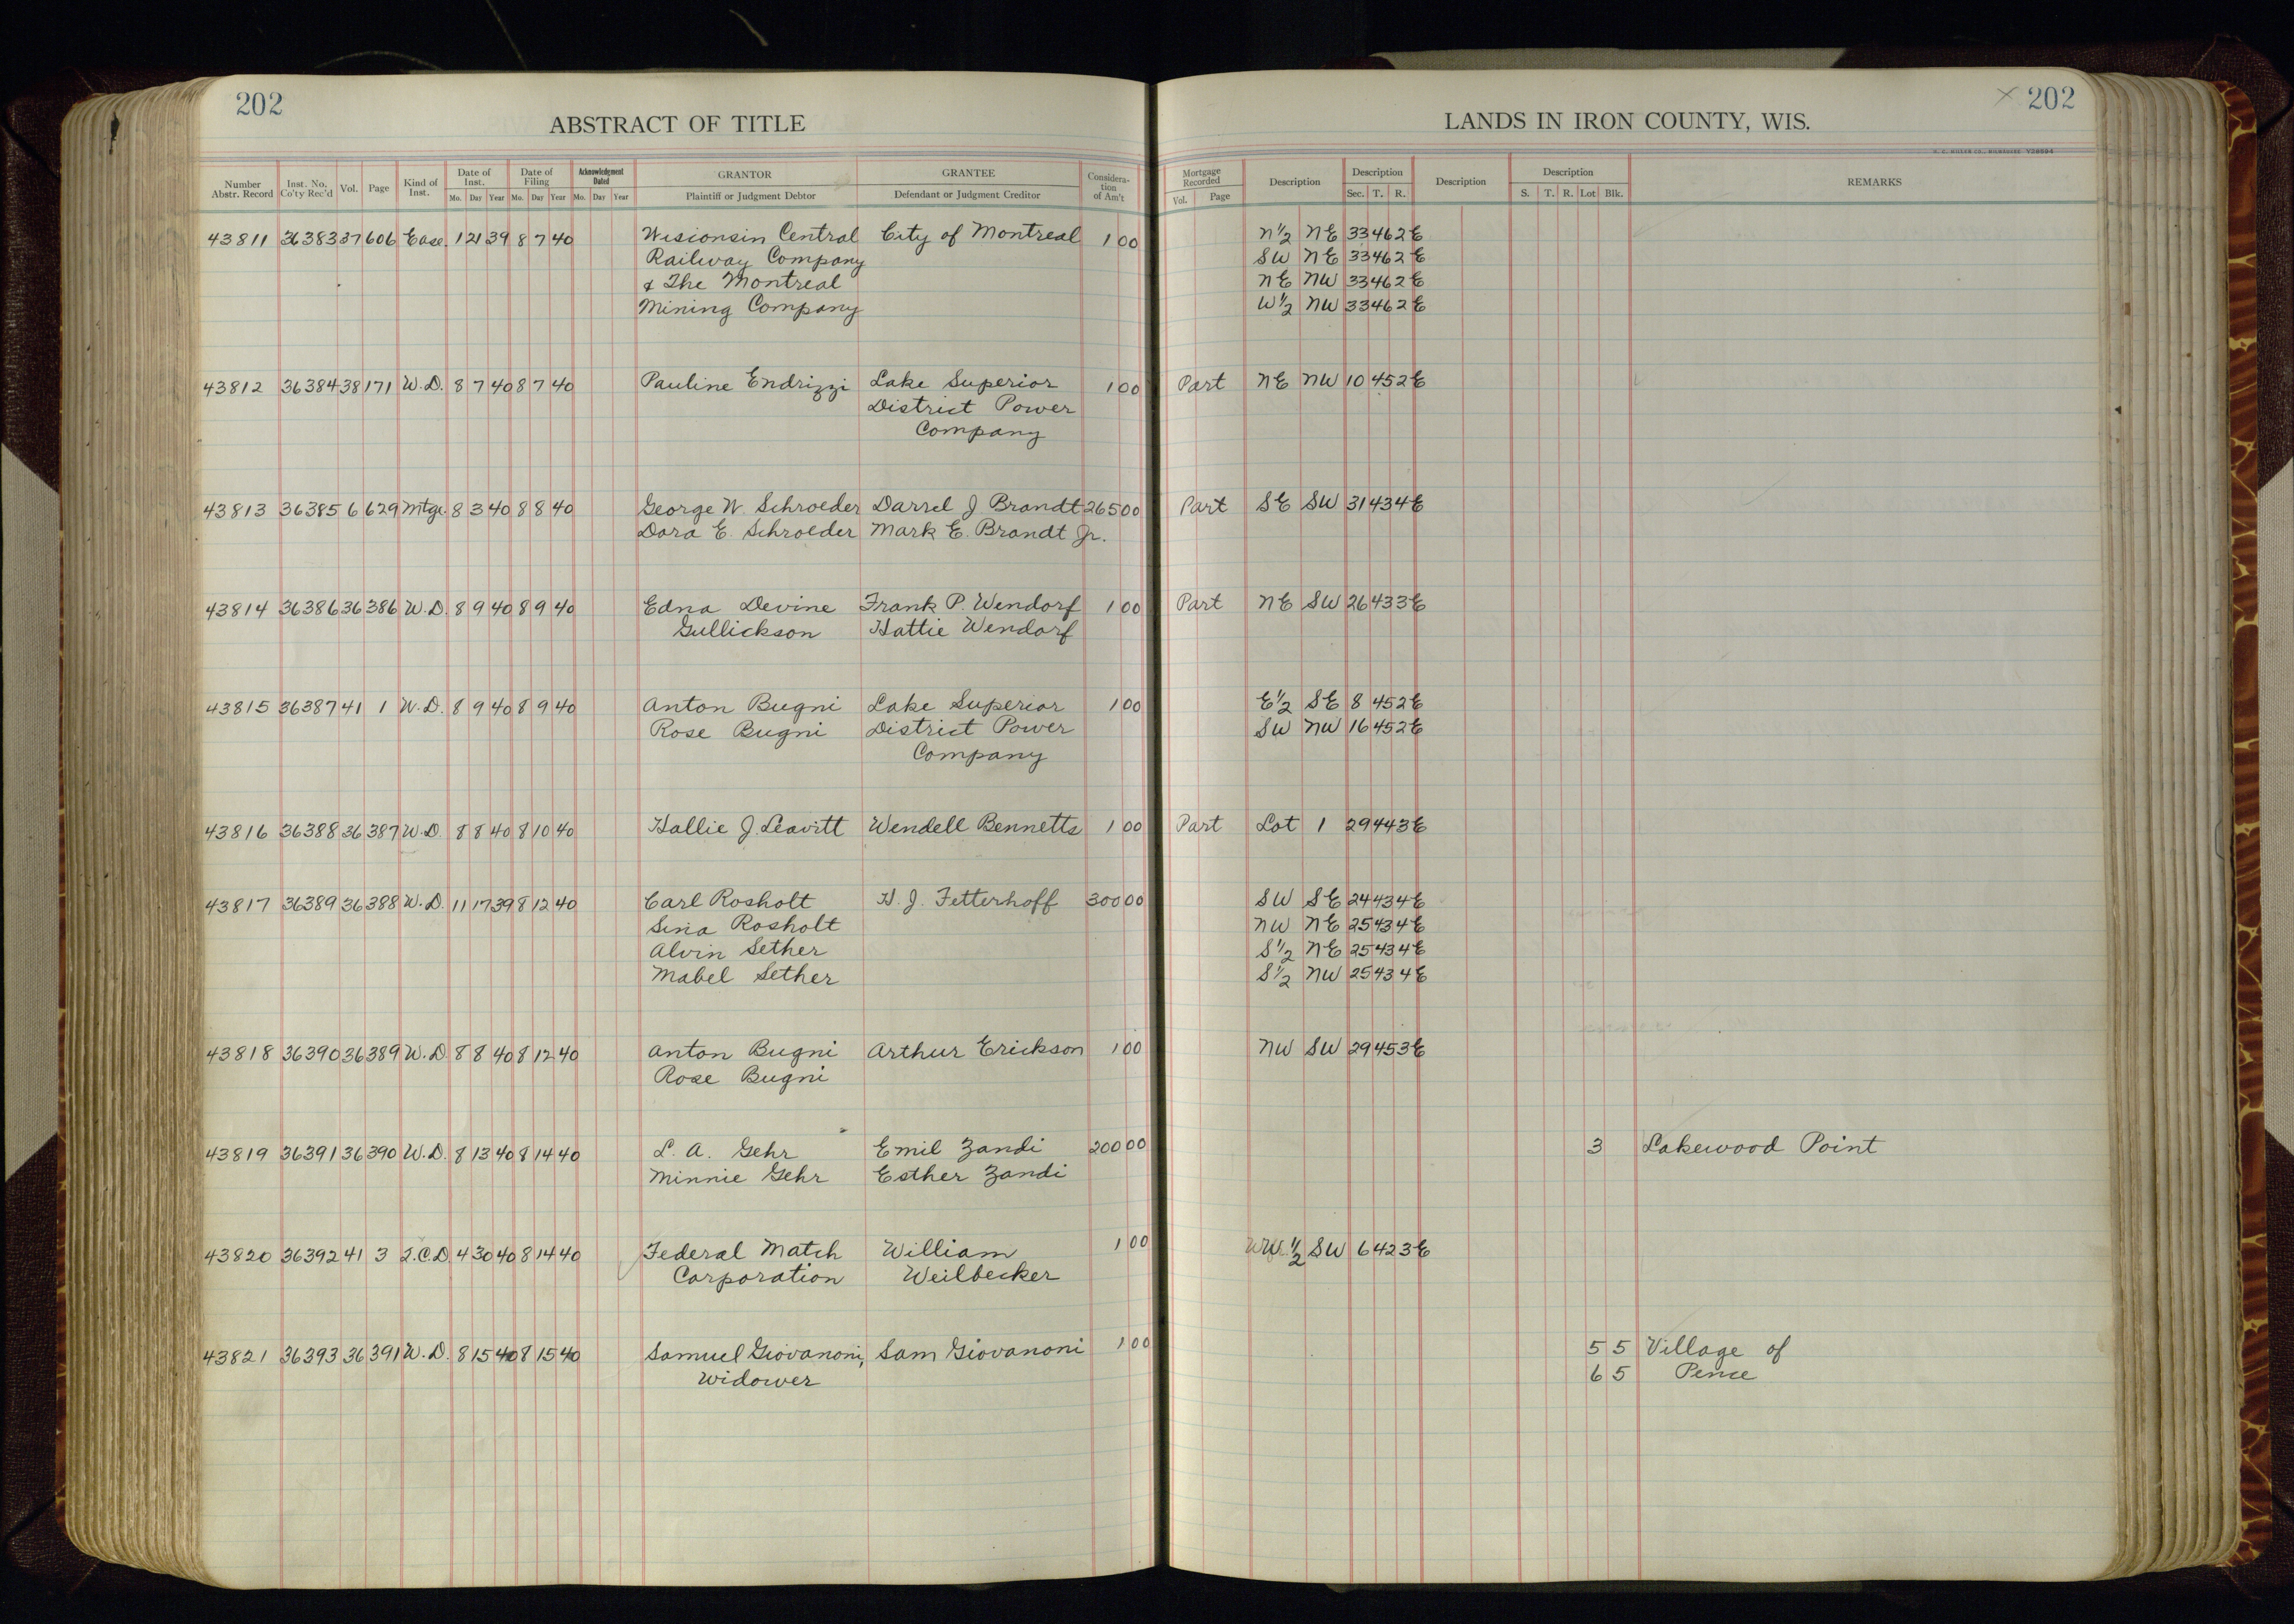 202
ABSTRACT OF TITLE
LANDS IN IRON COUNTY, WIS.
202
Number Abstr. Record Inst. No. Co'ty Rec'd Vol. Page Kind of Inst. Date of Inst. Mo. Day Year Date of Filing Mo. Day Year Acknowledgment Dated Mo. Day Year GRANTOR Plaintiff or Judgment Debtor GRANTEE Defendant or Judgment Creditor Considera-tion of Am't Mortgage Recorded Vol. Page Description Description Sec. T. R. Description Description S. T. R. Lot Blk. REMARKS
43811 36383 37 606 Ease. 1 21 39 8 7 40 Wisionsin Central City of Montreal 1 00 N½ NE 33 46 2E
Railway Company SW NE 33 46 2E
& The Montreal NE NW 33 46 2E
Mining Company W½ NW 33 46 2E
43812 36384 38 171 W.D. 8 7 40 8 7 40 Pauline Endrizzi Lake Superior 1 00 Part NE NW 10 45 2E
District Power
Company
43813 36385 6 629 Mtge. 8 3 40 8 8 40 George W. Schroeder Darrel J Brandt 265 00 Part SE SW 31 43 4E
Dora E. Schroeder Mark E. Brandt Jr.
43814 36386 36 386 W.D. 8 9 40 8 9 40 Edna Devine Frank P. Wendorf 1 00 Part NE SW 26 43 3E
Gullickson Hattie Wendorf
43815 36387 41 1 W.D. 8 9 40 8 9 40 Anton Bugni Lake Superior 1 00 E½ SE 8 45 2E
Rose Bugni District Power SW NW 16 45 2E
Company
43816 36388 36 387 W.D. 8 8 40 8 10 40 Hallie J. Leavitt Wendell Bennetts 1 00 Part Lot 1 29 44 3E
43817 36389 36 388 W.D. 11 17 39 8 12 40 Carl Rosholt H. J. Fetterhoff 300 00 SW SE 24 43 4E
Sina Rosholt NW NE 25 43 4E
Alvin Sether S½ NE 25 43 4E
Mabel Sether S½ NW 25 43 4E
43818 36390 36 389 W.D. 8 8 40 8 12 40 Anton Bugni Arthur Erickson 1 00 NW SW 29 45 3E
Rose Bugni
43819 36391 36 390 W.D. 8 13 40 8 14 40 L. A. Gehr Emil Zandi 200 00 3 Lakewood Point
Minnie Gehr Esther Zandi
43820 36392 41 3 2.C.D. 4 30 40 8 14 40 Federal Match William 1 00 ½ SW 6 42 3E
Corporation Weilbecker
43821 36393 36 391 W.D. 8 15 40 8 15 40 Samuel Giovanoni, Sam Giovanoni 1 00 5 5 Village of
Widower 6 5 Pence